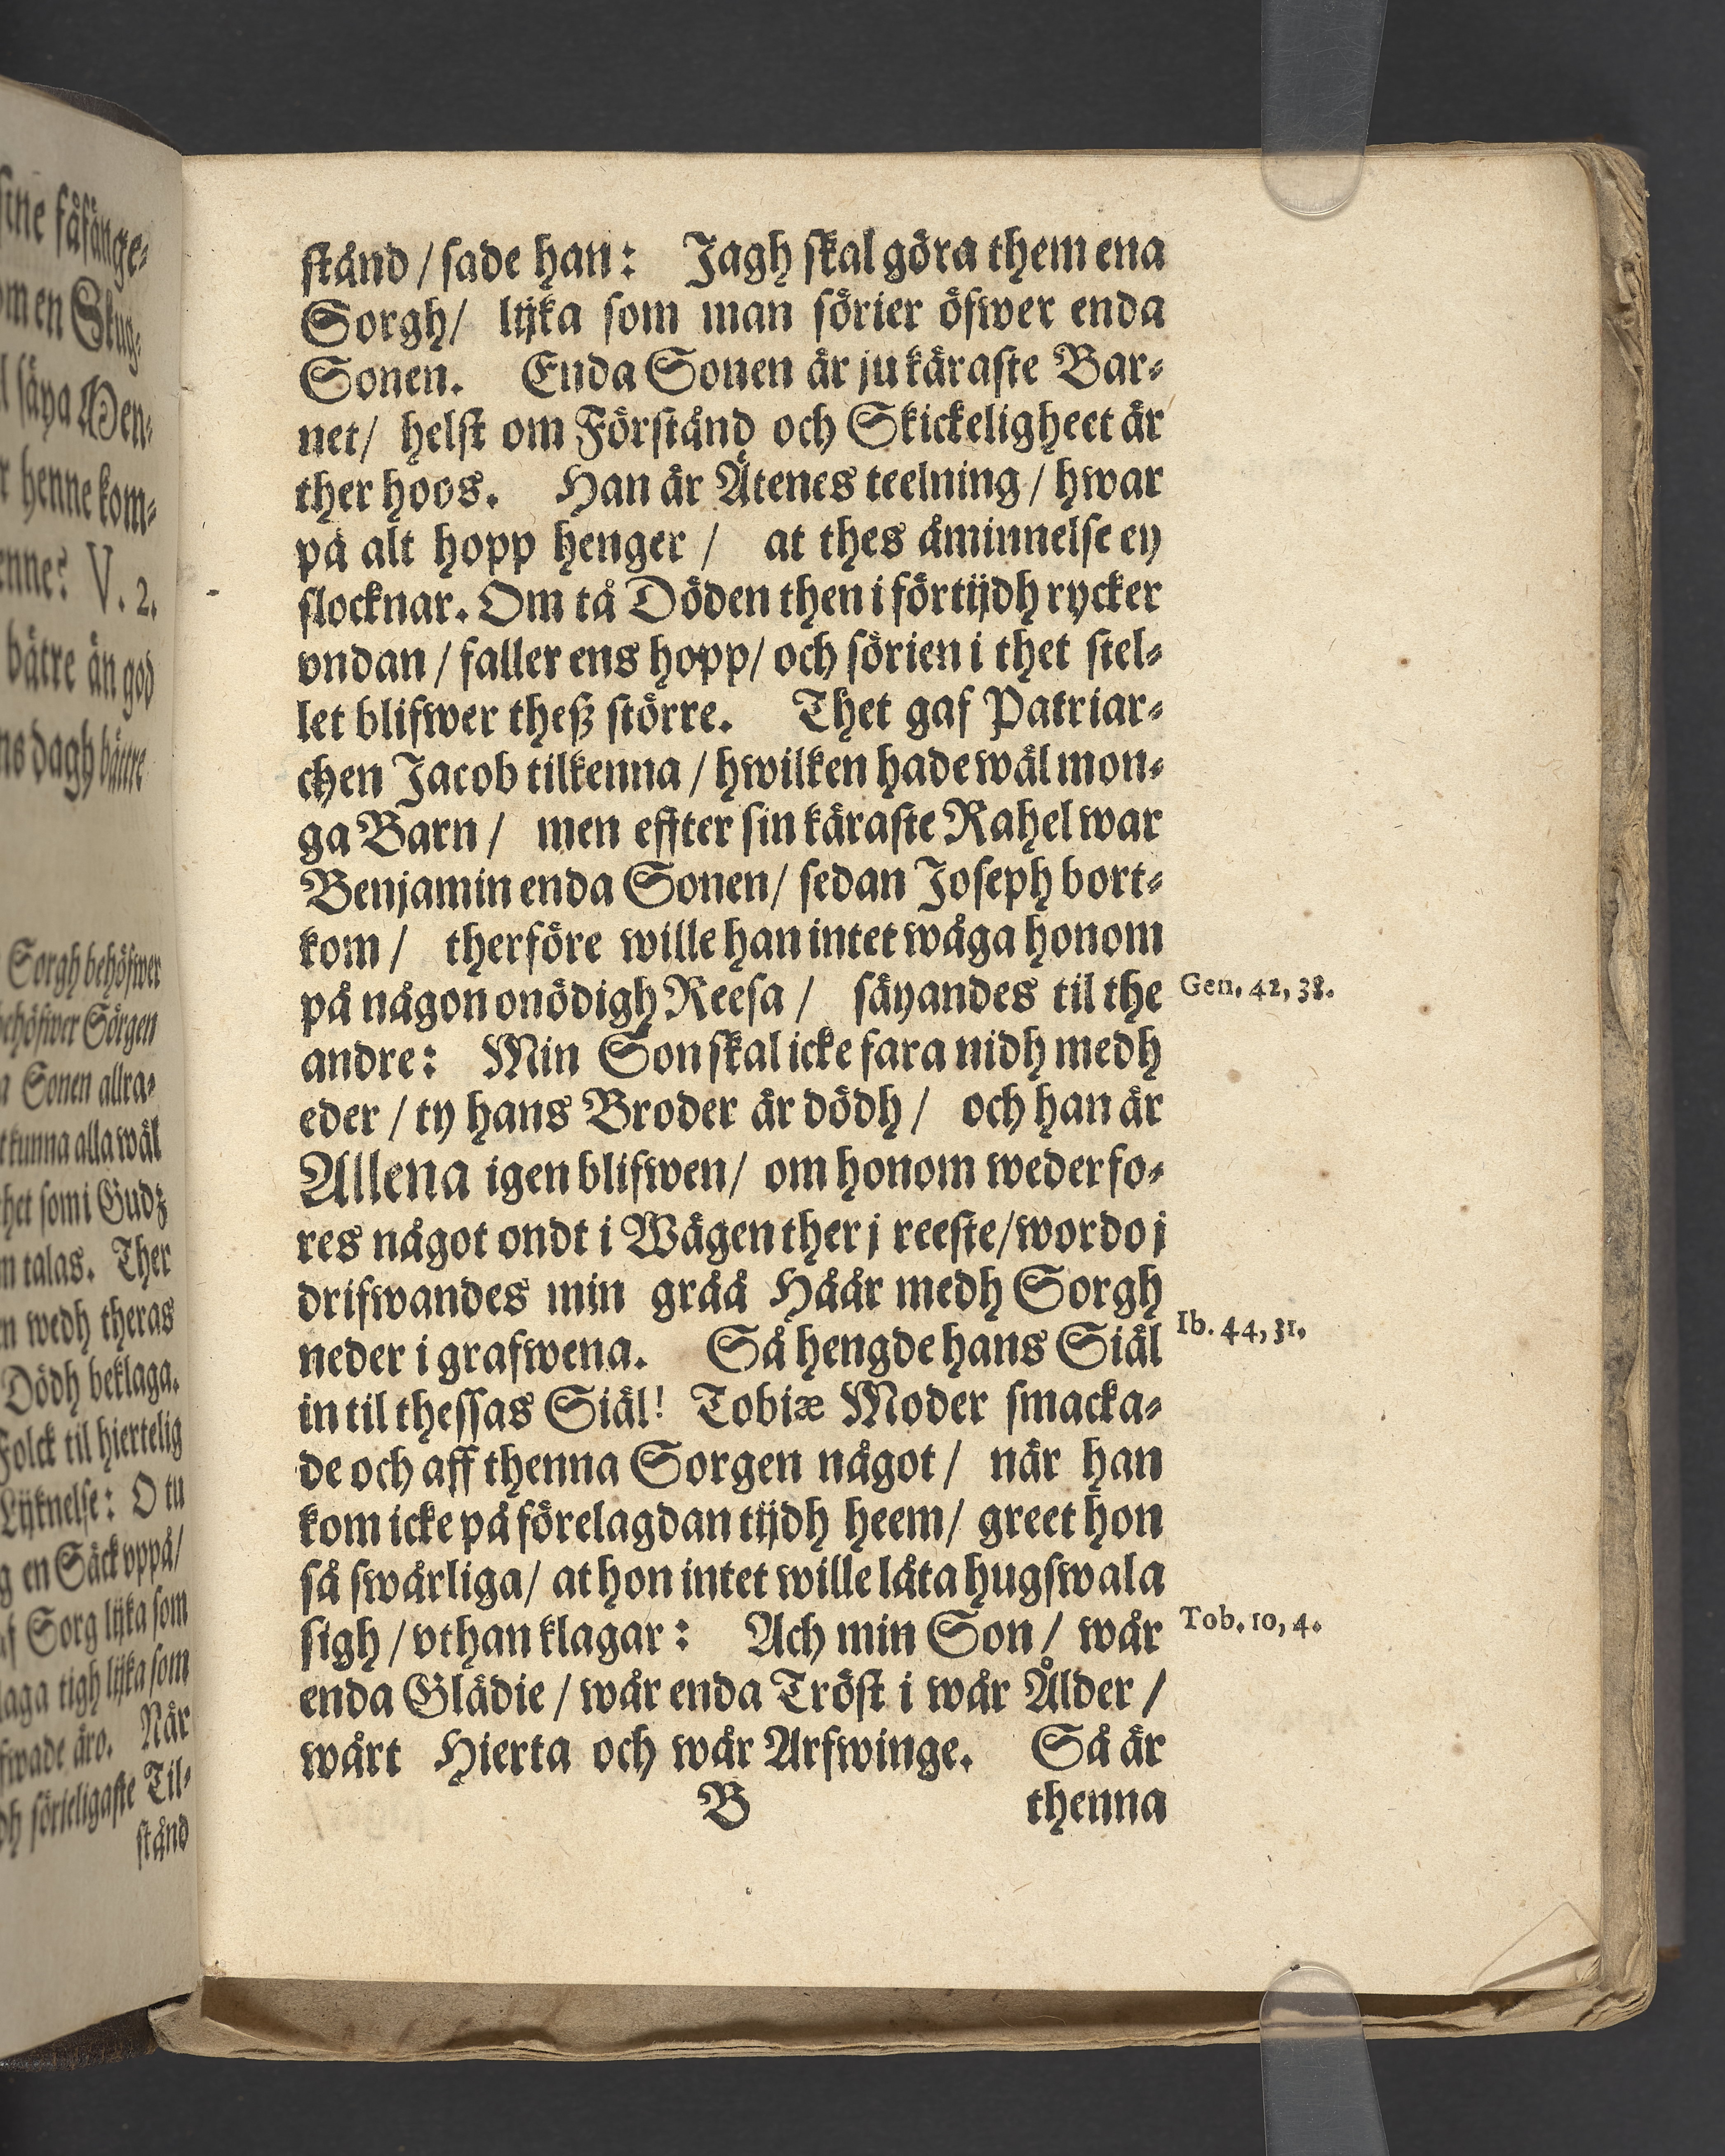 ständ / sade han: Jagh skal göra them ena
Sorgh / lijka som man sörier öfwer enda
Sonen. Enda Sonen är ju käraste Bar-
net / helst om Förständ och Skickeligheet är
ther hoos. Han är Ätenes teelning / hwar
på alt hopp henger / at thes åminnelse ey
slocknar. Om tå Döden then i förtijdh rycker
vndan / faller ens hopp / och sörien i thet stel-
let blifwer theß större. Thet gaf Patriar-
chen Jacob tilkenna / hwilken hade wäl mon-
ga Barn / men effter sin käraste Rahel war
Benjamin enda Sonen / sedan Joseph bort-
kom / therföre wille han intet wåga honom
på någon onödigh Reesa / säyandes til the
Gen. 42, 38.
andre: Min Son skal icke fara nidh medh
eder / ty hans Broder är dödh / och han är
Allena igen blifwen / om honom wederfo-
res något ondt i Wägen ther j reeste / wordo j
drifwandes min gråå Håår medh Sorgh
neder i grafwena. Så hengde hans Siäl
Ib. 44, 31.
in til thessas Siäl! Tobiæ Moder smacka-
de och aff thenna Sorgen något / när han
kom icke på förelagdan tijdh heem / greet hon
så swårliga / at hon intet wille låta hugswala
sigh / vthan klagar: Ach min Son / wår
Tob. 10, 4.
enda Glädie / wår enda Tröst i wår Ålder /
wårt Hierta och wår Arfwinge. Så är
B thenna